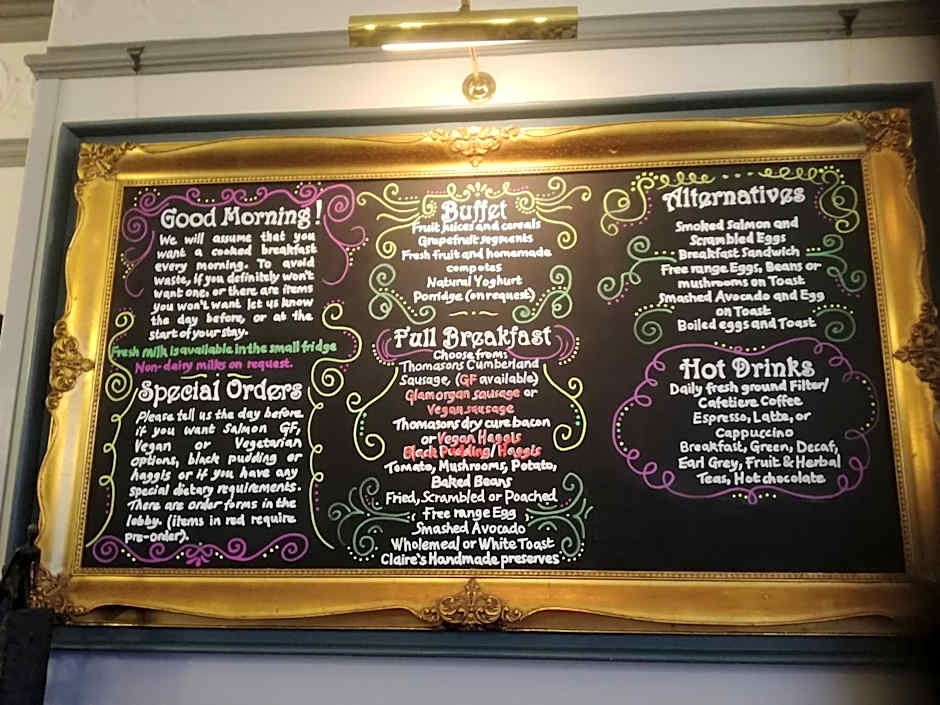 Good Morning!
We will assume that you
want a cooked breakfast
every morning. To avoid
waste, if you definitely won't
want one, or there are items
you won't want let us know
the day before, or at the
start of your stay.
Fresh milk is available in the small fridge
Non-dairy milks on request.
Special Orders
Please tell us the day before
if you want Salmon GF,
Vegan or Vegetarian
options, black pudding or
haggis or if you have any
special dietary requirements.
There are order forms in the
lobby. (items in red require
pre-order).
Buffet
Fruit juices and cereals
Grapefruit segments
Fresh fruit and homemade
compotes
Natural Yoghurt
Porridge (on request)
Full Breakfast
Choose from:
Thomasons Cumberland
Sausage, (GF available)
Glamorgan sausage or
Vegan sausage
Thomasons dry cure bacon
or Vegan Haggis
Black Pudding/Haggis
Tomato, Mushrooms, Potato,
Baked Beans
Fried, Scrambled or Poached
Free range Egg
Smashed Avocado
Wholemeal or White Toast
Claire's Handmade preserves
Alternatives
Smoked Salmon and
Scrambled Eggs
Breakfast Sandwich
Free range Eggs, Beans or
mushrooms on Toast
Smashed Avocado and Egg
on Toast
Boiled eggs and Toast
Hot Drinks
Daily fresh ground Filter/
Cafetiere Coffee
Espresso, Latte, or
Cappuccino
Breakfast, Green, Decaf,
Earl Grey, Fruit & Herbal
Teas, Hot chocolate